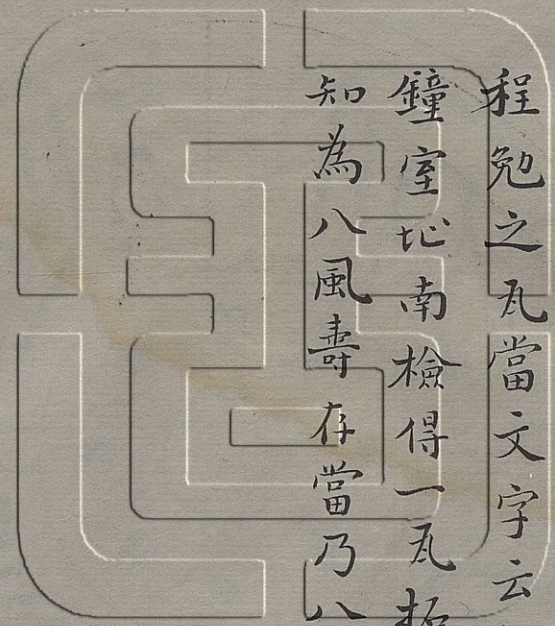 程勉之瓦當文字云
鐘室址南檢得一瓦拓
知為八風壽存當乃八